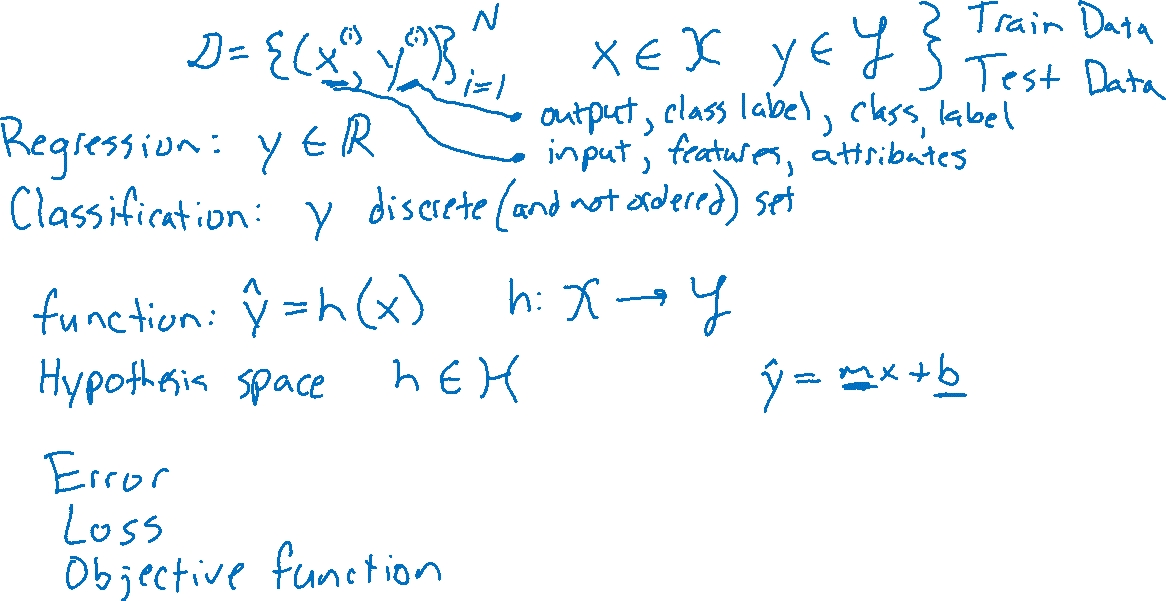 𝒟 = {(x⁽ⁱ⁾, y⁽ⁱ⁾)}ᴺᵢ₌₁ x ∈ 𝒳 y ∈ 𝒴 } Train Data
Test Data
output, class label, class, label
Regression: y ∈ ℝ
input, features, attributes
Classification: y discrete (and not ordered) set
function: ŷ = h(x) h: 𝒳 → 𝒴
Hypothesis space h ∈ ℋ ŷ = mx + b
Error
Loss
Objective function